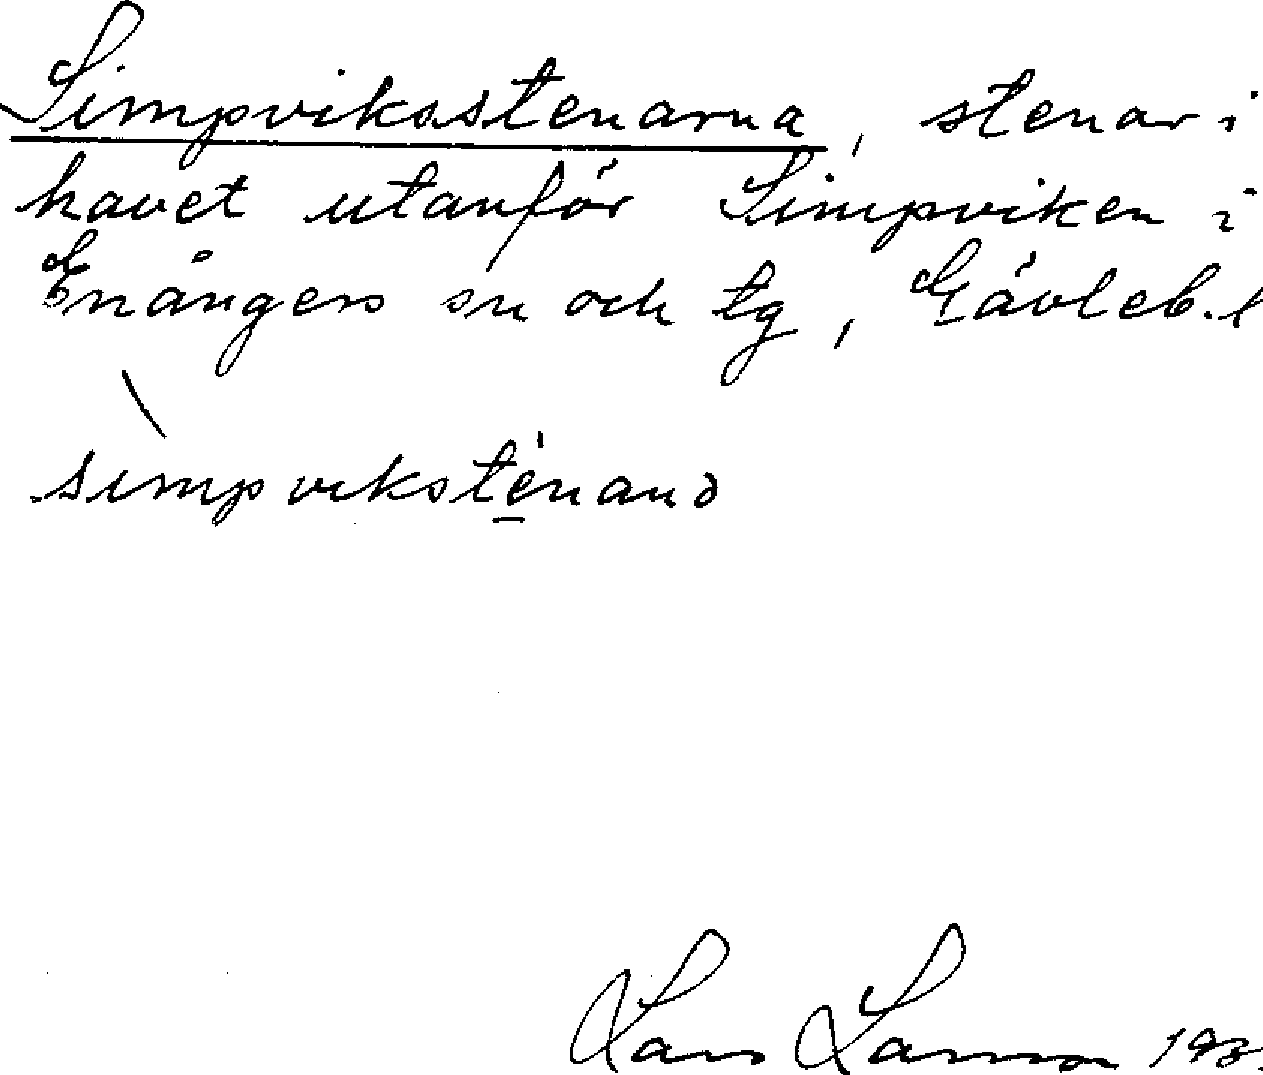 Simpviksstenarna, stenar i
havet utanför Simpviken i
Enångers sn och tg, Gävleb. l
simpvikstenanə
Lars Larsson 193